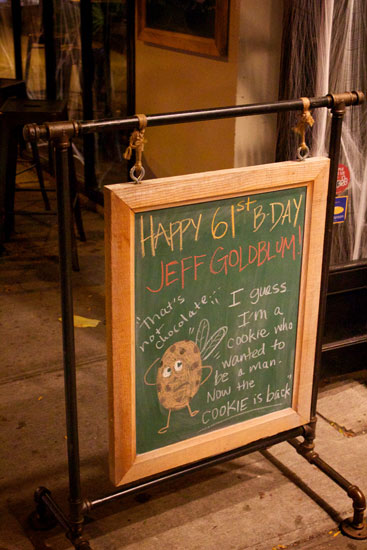 HAPPY 61st B·DAY
JEFF GOLDBLUM!
"That's
not
chocolate..."
"I guess
I'm a
cookie who
wanted to
be a man.
Now the
COOKIE is back"